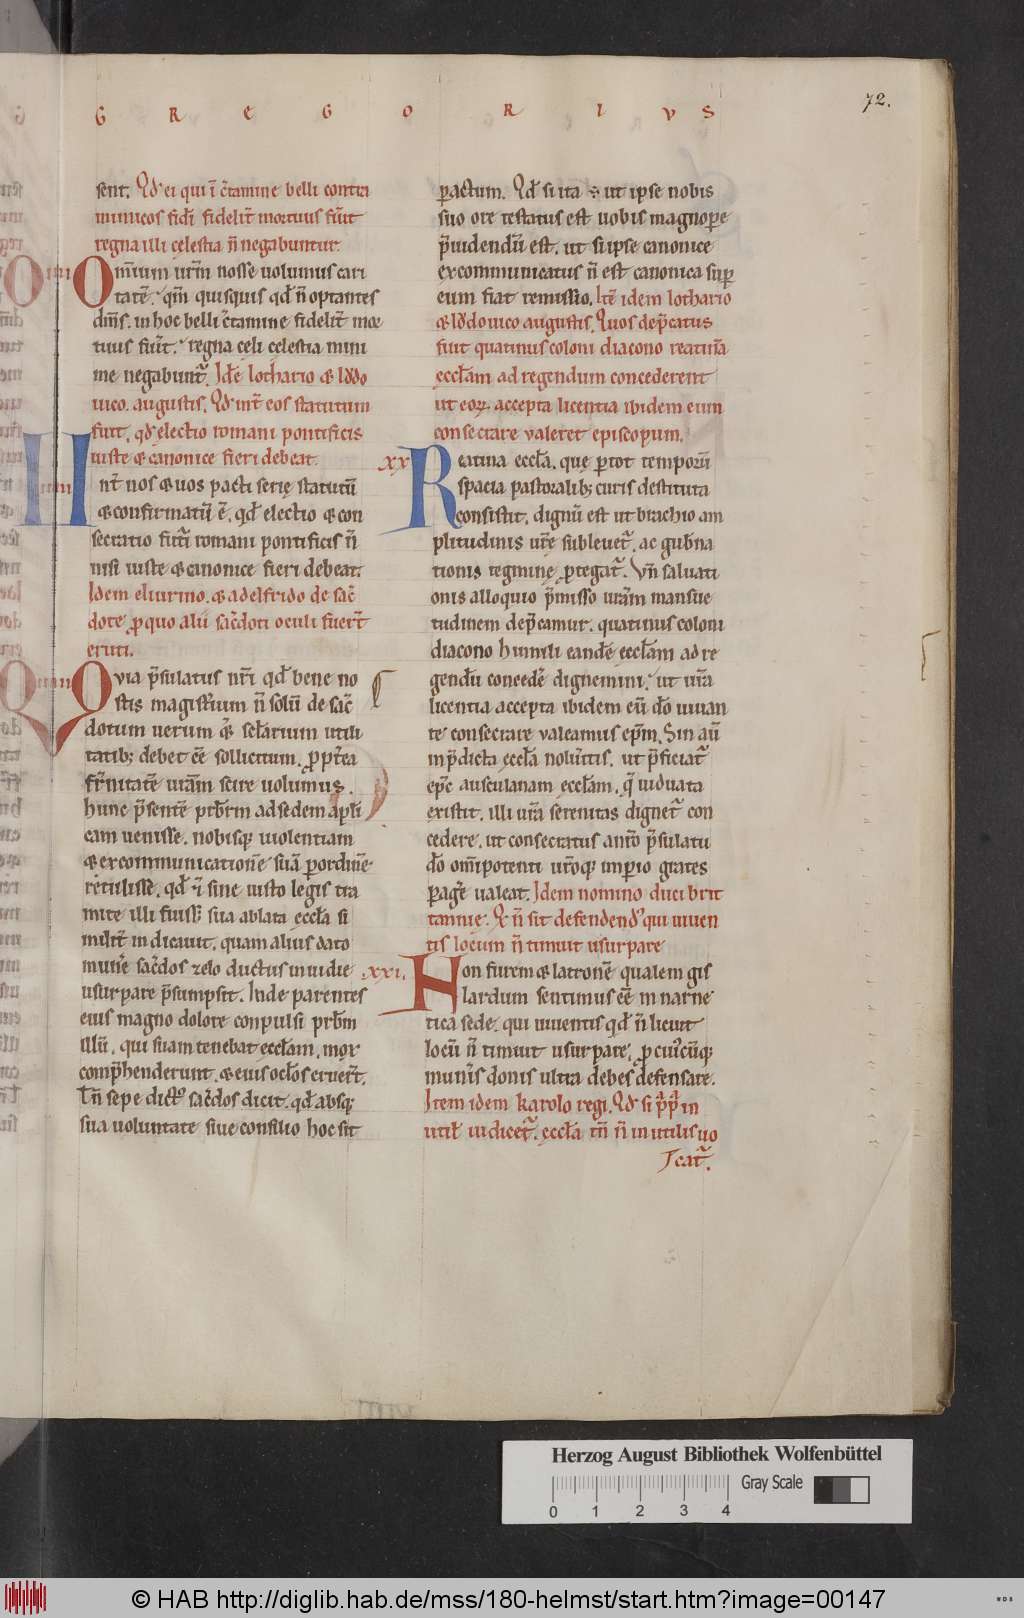 G R E G O R I V S
72.
sent. Qd̄ ei qui ī c̄tamine belli contra
inimicos fidi fidelit̄ mortuus fūit
regna illi cęlestia n̄ negabuntur.
Omnium ur̄m nosse uolumus cari
tatē. qm̄ quisquis qd̄ n̄ optantes
dim̄s. in hoc belli c̄tamine fidelit̄ mor
tuus fūit. regna cęli cęlestia mini
me negabunt᷑. Idē lothario & lodo
uico. augustis. Qd̄ int̄ eos statutum
fuit. qd̄ electio romani pontificis
iuste & canonice fieri debeat.
Int̄ nos & uos pacti serię statutū
& confirmatū ē. qd̄ electio & con
secratio futī romani pontificis n̄
nisi iuste & canonice fieri debeat.
Idem eliurino. & adelfrido de sac̄
dote. pro quo alii sac̄doti oculi fuer̄t
eruti.
Qvia p̄sulatus nr̄i qd̄ bene no
stis magist̄ium n̄ solū de sac̄
dotum uerum & sclarium utili
tatib; debet ēē sollicitum. propt̄ea
fr̄nitatē ur̄am scire uolumus.
hunc p̄sentē prb̄rm ad sedem apl̄i
cam uenisse. nobisq; uiolentiam
& excommunicationē suā per ordinē
retulisse. qd̄ ī sine iusto legis tra
mite illi fuiss̄ sua ablata ęccl̄a si
milit̄ indicauit. quam alius dato
munēe sac̄dos zelo ductus inuidie
usurpare p̄sumpsit. Inde parentes
eius magno dolore conpulsi prb̄m
illū. qui suam tenebat ęccl̄am. mox
comp̄henderunt. & eius oc̄los eruer̄t.
Un̄ sepe dict᷒ sac̄dos dicit. qd̄ absq;
sua uoluntate siue consilio hoc sit
peractum. Qd̄ si ita ÷ ut ipse nobis
suo ore testatus est uobis magnope
p̄uidendū est. ut si ipse canonice
excommunicatus n̄ est canonica sup
eum fiat remissio. Itē idem lothario
& lodouico augustis. Quos dep̄catus
fuit quatinus coloni diacono reatinā
ęccl̄am ad regendum concederent
ut eoꝝ accepta licentia ibidem eum
consecrare ualeret episcopum.
xx Reatina eccl̄a. quę p tot temporū
spacia pastoralib; curis destituta
consistit. dignū est ut brachio am
plitudinis ur̄e subleuet᷑. ac gub̄na
tionis tegmine protegat᷑. Vn̄ saluati
onis alloquio p̄misso ur̄am mansue
tudinem dep̄camur. quatinus coloni
diacono humili eandē ęccl̄am ad re
gendū concedē dignemini. ut ur̄a
licentia accepta ibidem eū dō iuuan
te consecrare ualeamus ep̄m. Sin aū
in p̄dicta ęccl̄a nolūitis. ut p̄ficiat᷑
ep̄c ausculanam ęccl̄am. q̄ uiduata
existit. illi ur̄a serenitas dignet᷑ con
cedere. ut consecratus anno p̄sulatu
dō om̄ipotenti ur̄oq; imperio grates
pagē ualeat. Idem nomino duci brit
tannie. Qd̄ n̄ sit defendend᷒ qui uiuen
tis locum n̄ timuit usurpare
xxi. Non furem & latronē qualem gis
lardum sentimus ēē in narne
tica sede. qui uiuentis qd̄ n̄ licuit
locū n̄ timuit usurpare. pro cuicūq;
munīs donis ultra debes defensare.
Item idem karolo regi. Qd̄ si p̄p̄ in
util᷑ iudicet᷑. ęccl̄a tn̄ n̄ inutilis uo
cat᷑.
Herzog August Bibliothek Wolfenbüttel
Gray Scale
0 1 2 3 4
© HAB http://diglib.hab.de/mss/180-helmst/start.htm?image=00147